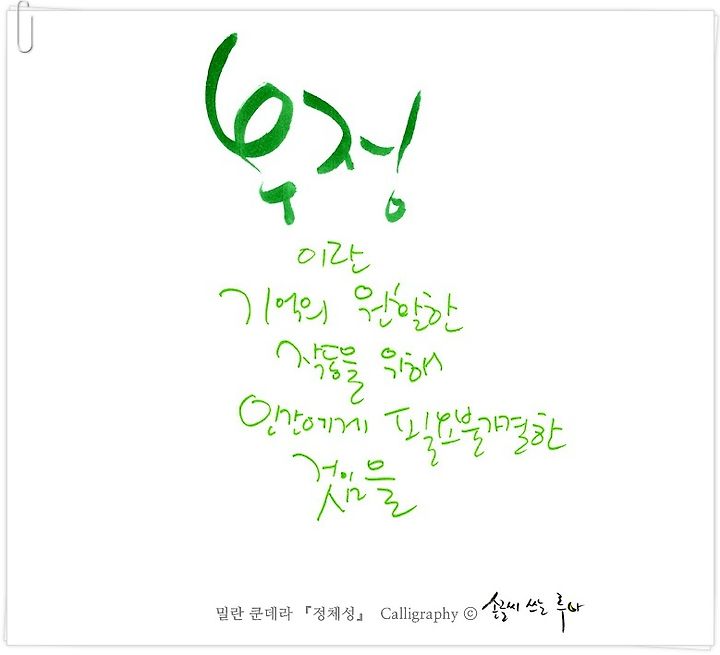 우정
이란
기억의 원활한
작동을 위해
인간에게 필요불가결한
것임을
밀란 쿤데라 『정체성』 Calligraphy ⓒ 손글씨 쓰는 루아